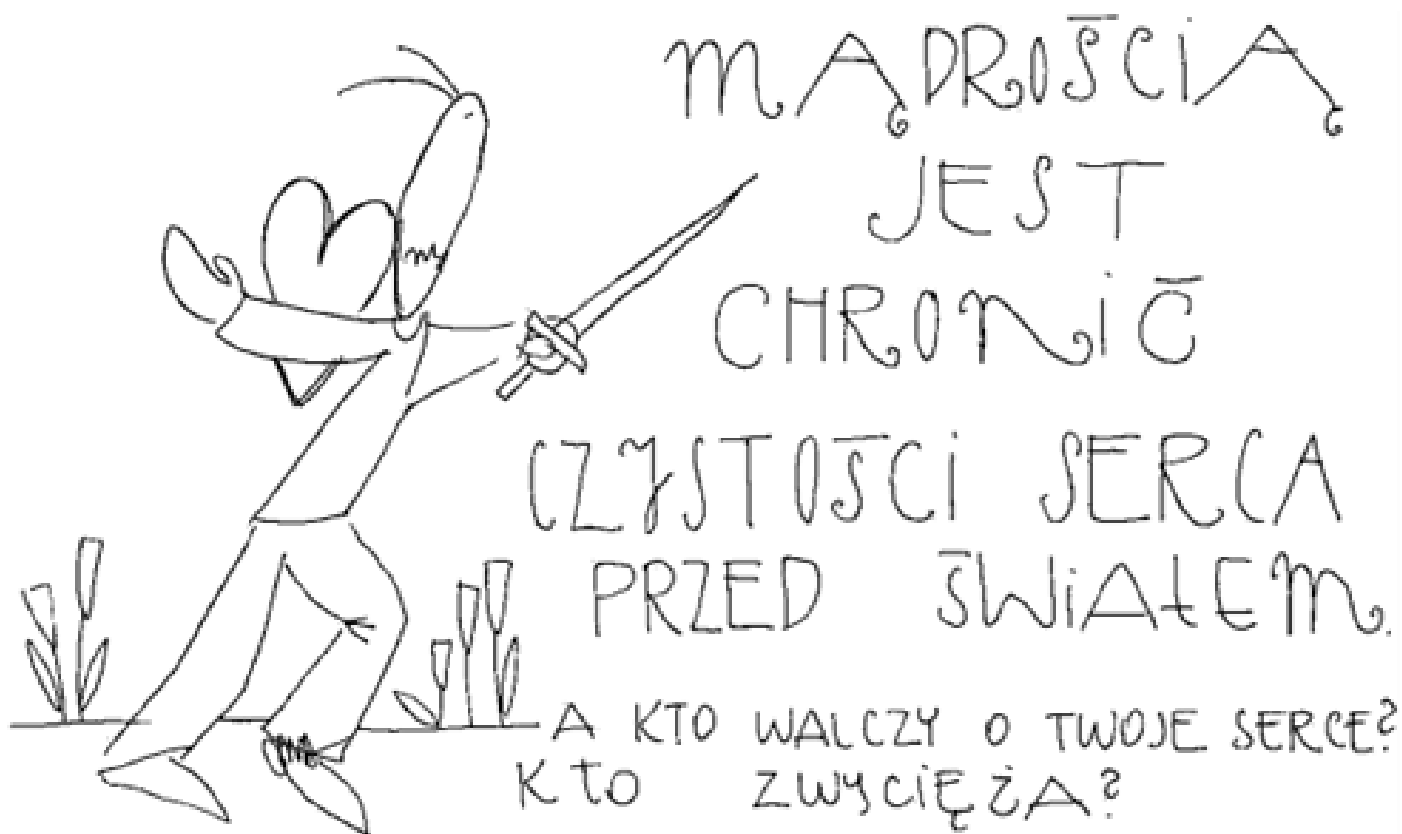 MĄDROŚCIĄ
JEST
CHRONIĆ
CZYSTOŚCI SERCA
PRZED ŚWIATEM.
A KTO WALCZY O TWOJE SERCE?
KTO ZWYCIĘŻA?